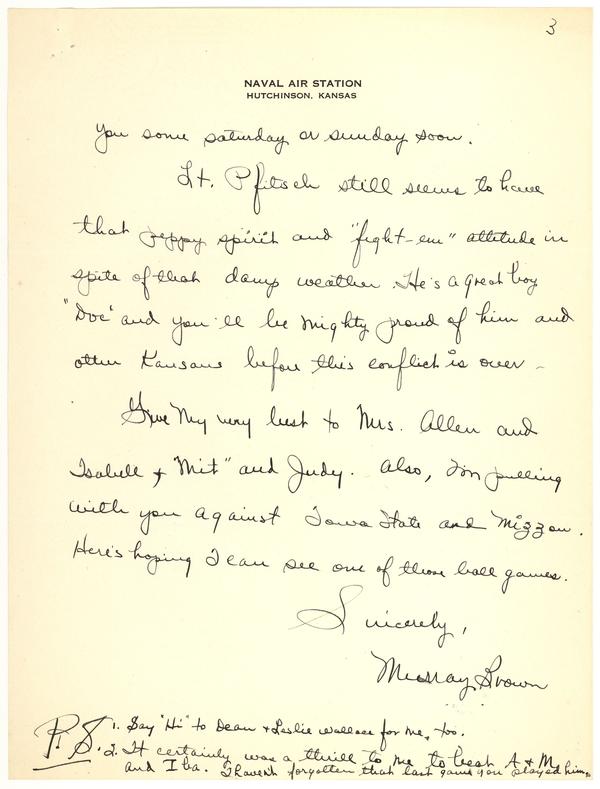 3
NAVAL AIR STATION
HUTCHINSON, KANSAS
you some saturday or sunday soon.
Lt. Pfitsch still seems to have
that peppy spirit and "fight-em" attitude in
spite of that damp weather. He's a great boy
"Doc" and you'll be mighty proud of him and
other Kansans before this conflict is over -
Give My very best to Mrs. Allen and
Isabell + "Mit" and Judy. Also, I'm pulling
with you against Iowa State and Mizzou.
Here's hoping I can see one of those ball games.
Sincerely,
Murray Brown
P.S. 1. Say "Hi" to Dean + Leslie Wallace for me, too.
2. It certainly was a thrill to me to beat A & M
and Iba. I haven't forgotten that last game you played him.